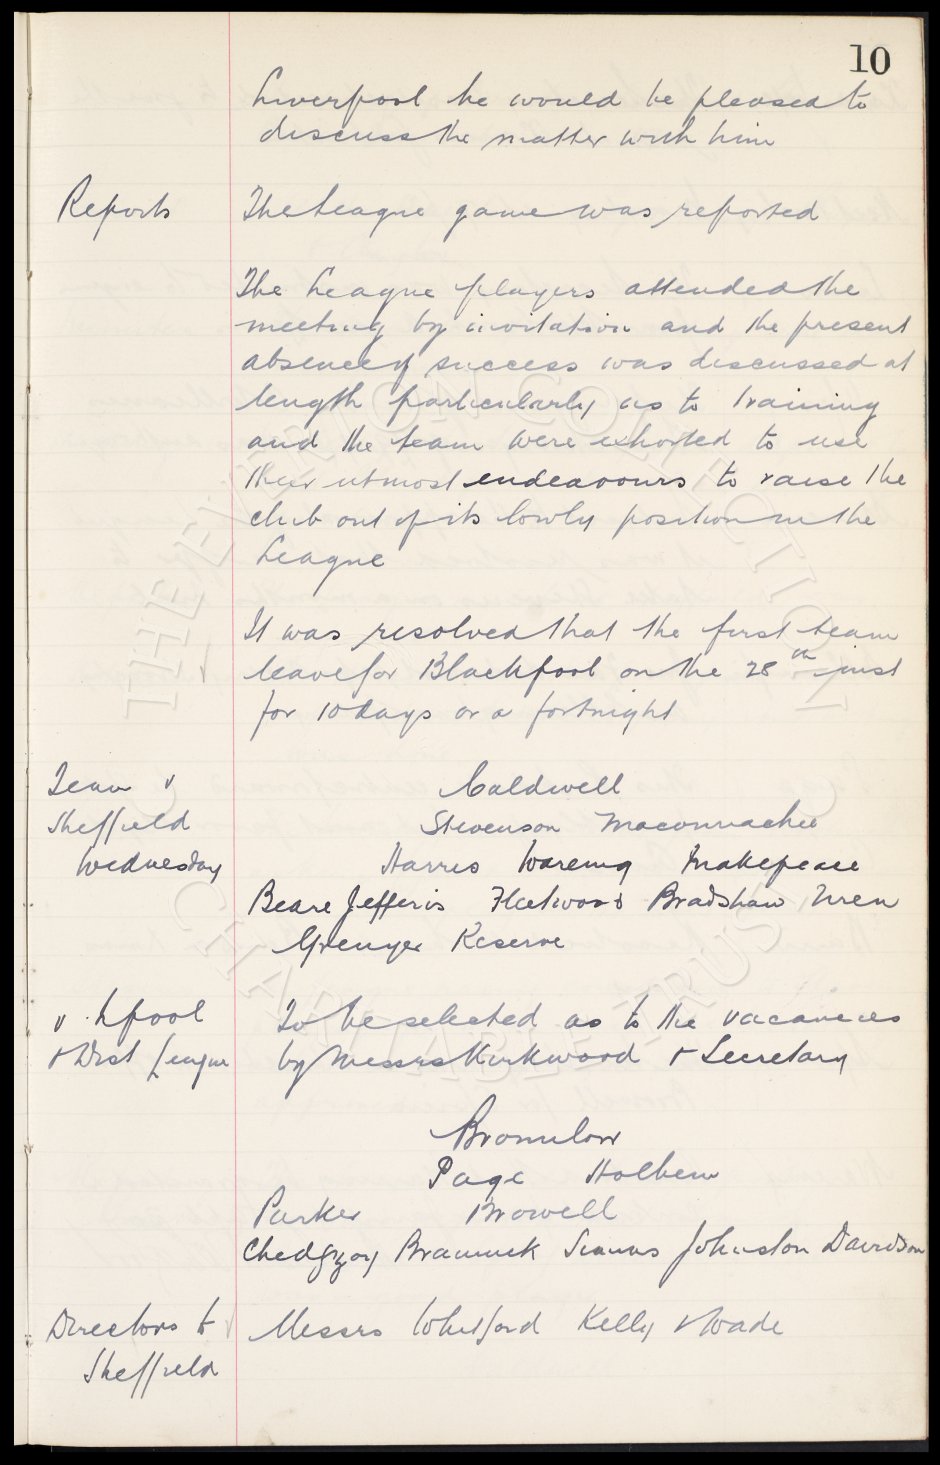 10
Liverpool he would be pleased to
discuss the matter with him
Reports
The League game was reported
The League players attended the
meeting by invitation and the present
absence of success was discussed at
length particularly as to training
and the team were exhorted to use
their utmost endeavours to raise the
club out of its lowly position in the
League
It was resolved that the first team
leave for Blackpool on the 28th inst
for 10 days or a fortnight
Team v
Sheffield
Wednesday
Caldwell
Stevenson Maconnachie
Harris Wareing Makepeace
Beare Jefferis Fleetwood Bradshaw Uren
Grenyer Reserve
v. Lpool
& Dist League
To be selected as to the vacancies
by Messrs Kirkwood & Secretary
Bromilow
Page Holbem
Parker Browell
Chedgzoy Brannick Simms Johnston Davidson
Directors to
Sheffield
Messrs Whitford Kelly & Wade
THE EVERTON COLLECTION
CHARITABLE TRUST